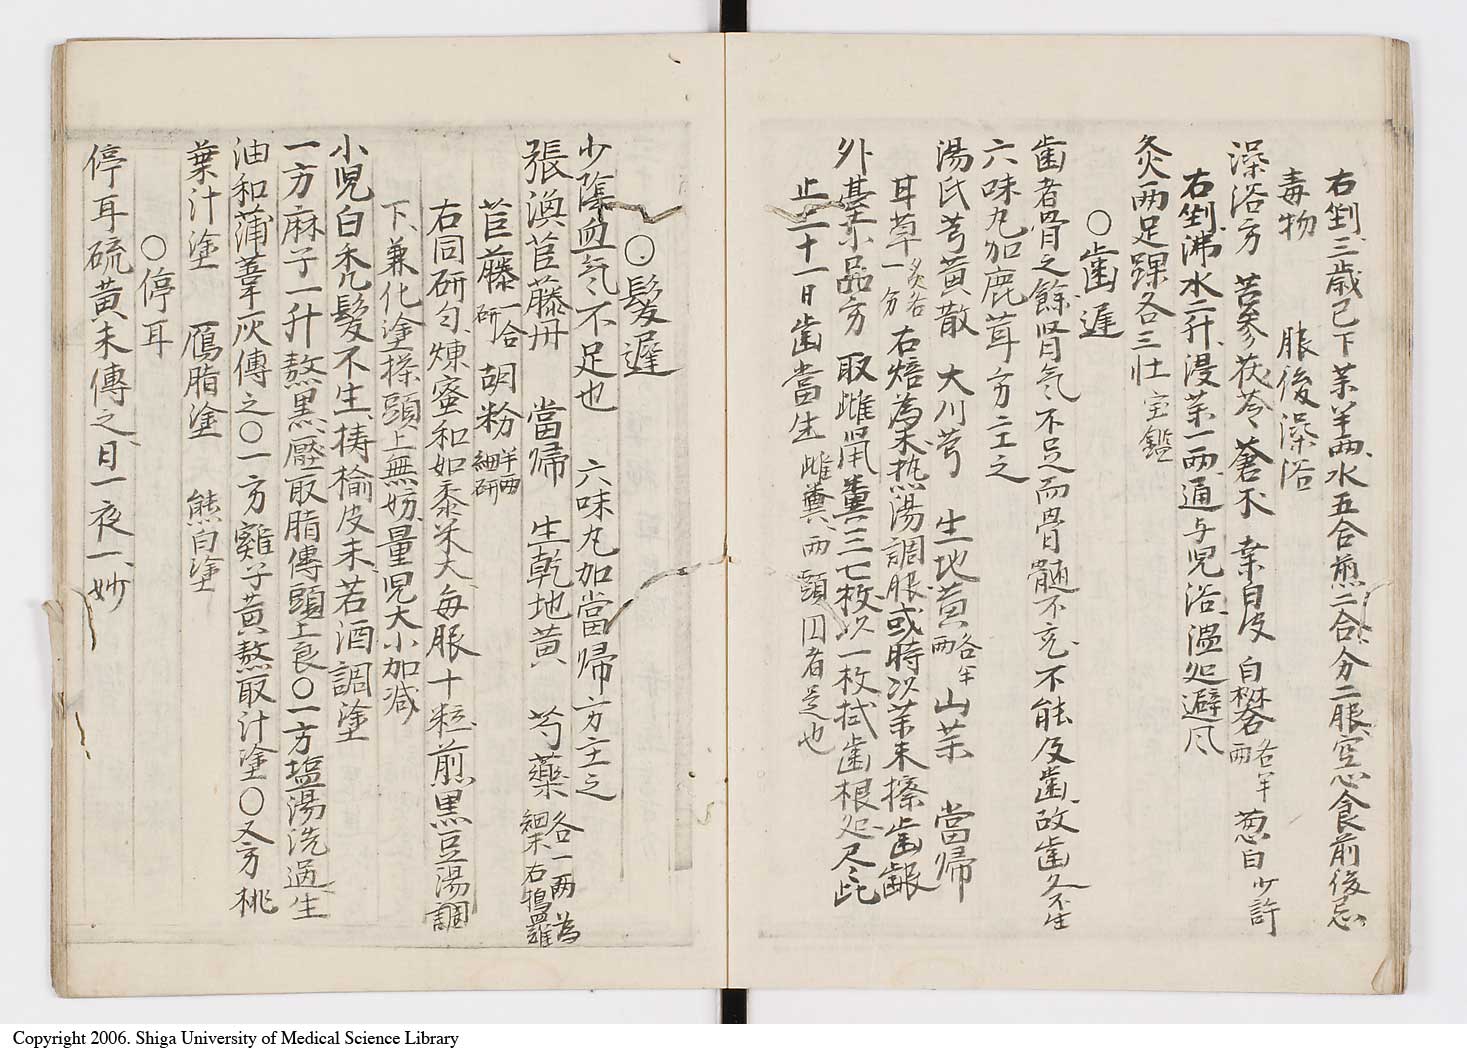 右剉三歳已下某半両水五合煎二合分二服空心食前後忌
毒物　服後澡浴
澡浴方　苦参茯苓蒼朮桑白皮　白礬各半両　葱白少許
右剉沸水二升浸某一両通与児浴温処避风
灸両足踝各三壮　宝鑑
○歯遅
歯者骨之餘肾氣不足而骨髄不充不能及歯改歯久不生
六味丸加鹿茸方主之
湯氏芎黄散　大川芎　生地黄各半両　山茱　當帰
甘草一分炙各　右焙為末热湯調服或時以茱末擦歯齦
外基小品方　取雌鼠糞三七枚以一枚拭歯根処尽此
止二十一日歯當生　雌糞両頭囙者是也
○髪遅
少隂血气不足也　六味丸加當帰方主之
張渙苣藤丹　當帰　生乾地黄　芍藥各一両為細末右鴇羅
苣藤一合研　胡粉半両細研
右同研匀煉蜜和如黍米大毎服十粒煎黒豆湯調
下兼化塗搽頭上無妨量児大小加减
小児白禿髪不生擣榆皮末若酒調塗
一方麻子一升熬黒壓取脂傅頭上良○一方塩湯洗過生
油和蒲葦灰傅之○一方雞子黄熬取汁塗○又方桃
葉汁塗　鴈脂塗　熊白塗
○停耳
停耳硫黄末傅之日一夜一妙
Copyright 2006. Shiga University of Medical Science Library